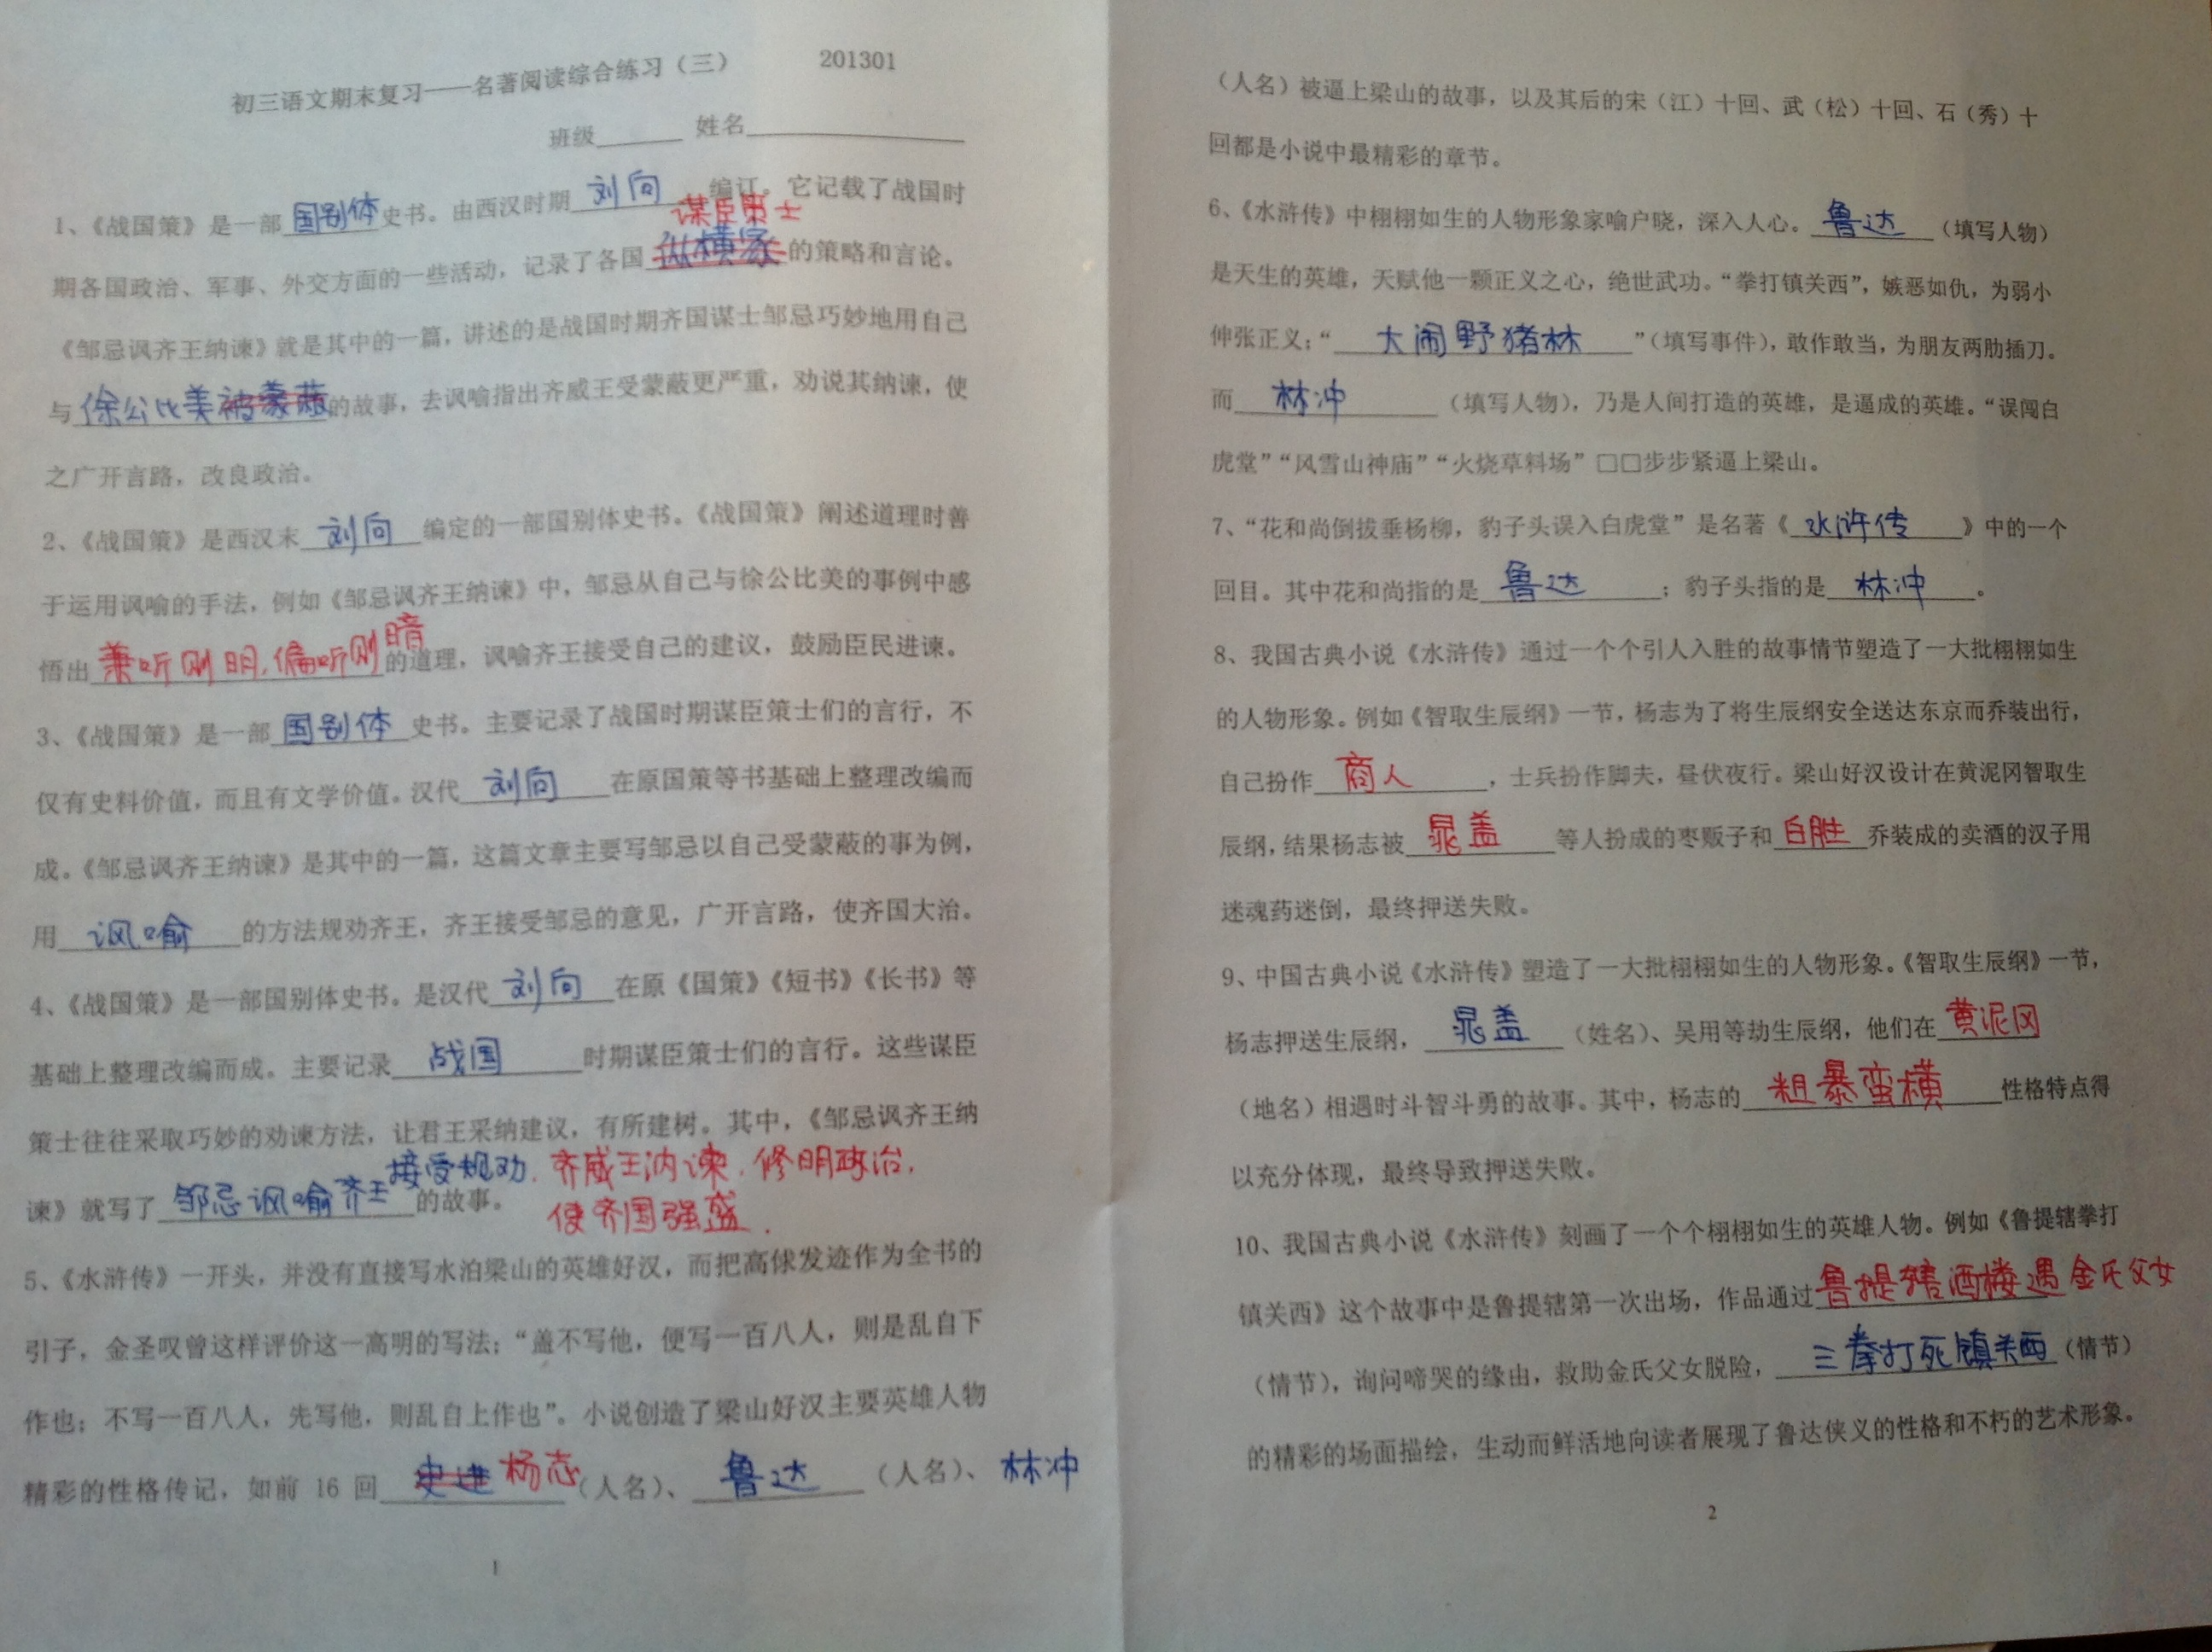 初三语文期末复习——名著阅读综合练习（三） 201301
班级______ 姓名______________
1、《战国策》是一部 国别体 史书。由西汉时期 刘向 编订。它记载了战国时
谋臣策士
期各国政治、军事、外交方面的一些活动，记录了各国 纵横家 的策略和言论。
《邹忌讽齐王纳谏》就是其中的一篇，讲述的是战国时期齐国谋士邹忌巧妙地用自己
与 徐公比美被蒙蔽 的故事，去讽喻指出齐威王受蒙蔽更严重，劝说其纳谏，使
之广开言路，改良政治。
2、《战国策》是西汉末 刘向 编定的一部国别体史书。《战国策》阐述道理时善
于运用讽喻的手法，例如《邹忌讽齐王纳谏》中，邹忌从自己与徐公比美的事例中感
悟出 兼听则明，偏听则暗 的道理，讽喻齐王接受自己的建议，鼓励臣民进谏。
3、《战国策》是一部 国别体 史书。主要记录了战国时期谋臣策士们的言行，不
仅有史料价值，而且有文学价值。汉代 刘向 在原国策等书基础上整理改编而
成。《邹忌讽齐王纳谏》是其中的一篇，这篇文章主要写邹忌以自己受蒙蔽的事为例，
用 讽喻 的方法规劝齐王，齐王接受邹忌的意见，广开言路，使齐国大治。
4、《战国策》是一部国别体史书。是汉代 刘向 在原《国策》《短书》《长书》等
基础上整理改编而成。主要记录 战国 时期谋臣策士们的言行。这些谋臣
策士往往采取巧妙的劝谏方法，让君王采纳建议，有所建树。其中，《邹忌讽齐王纳
谏》就写了 邹忌讽喻齐王接受规劝 的故事。齐威王纳谏，修明政治，
使齐国强盛.
5、《水浒传》一开头，并没有直接写水泊梁山的英雄好汉，而把高俅发迹作为全书的
引子，金圣叹曾这样评价这一高明的写法：“盖不写他，便写一百八人，则是乱自下
作也；不写一百八人，先写他，则乱自上作也”。小说创造了梁山好汉主要英雄人物
精彩的性格传记，如前 16 回 史进 杨志 （人名）、 鲁达 （人名）、 林冲
1
（人名）被逼上梁山的故事，以及其后的宋（江）十回、武（松）十回、石（秀）十
回都是小说中最精彩的章节。
6、《水浒传》中栩栩如生的人物形象家喻户晓，深入人心。 鲁达 （填写人物）
是天生的英雄，天赋他一颗正义之心，绝世武功。“拳打镇关西”，嫉恶如仇，为弱小
伸张正义；“ 大闹野猪林 ”（填写事件），敢作敢当，为朋友两肋插刀。
而 林冲 （填写人物），乃是人间打造的英雄，是逼成的英雄。“误闯白
虎堂”“风雪山神庙”“火烧草料场”□□步步紧逼上梁山。
7、“花和尚倒拔垂杨柳，豹子头误入白虎堂”是名著《 水浒传 》中的一个
回目。其中花和尚指的是 鲁达 ；豹子头指的是 林冲 。
8、我国古典小说《水浒传》通过一个个引人入胜的故事情节塑造了一大批栩栩如生
的人物形象。例如《智取生辰纲》一节，杨志为了将生辰纲安全送达东京而乔装出行，
自己扮作 商人 ，士兵扮作脚夫，昼伏夜行。梁山好汉设计在黄泥冈智取生
辰纲，结果杨志被 晁盖 等人扮成的枣贩子和 白胜 乔装成的卖酒的汉子用
迷魂药迷倒，最终押送失败。
9、中国古典小说《水浒传》塑造了一大批栩栩如生的人物形象。《智取生辰纲》一节，
杨志押送生辰纲， 晁盖 （姓名）、吴用等劫生辰纲，他们在 黄泥冈
（地名）相遇时斗智斗勇的故事。其中，杨志的 粗暴蛮横 性格特点得
以充分体现，最终导致押送失败。
10、我国古典小说《水浒传》刻画了一个个栩栩如生的英雄人物。例如《鲁提辖拳打
镇关西》这个故事中是鲁提辖第一次出场，作品通过 鲁提辖酒楼遇金氏父女
（情节），询问啼哭的缘由，救助金氏父女脱险， 三拳打死镇关西 （情节）
的精彩的场面描绘，生动而鲜活地向读者展现了鲁达侠义的性格和不朽的艺术形象。
2